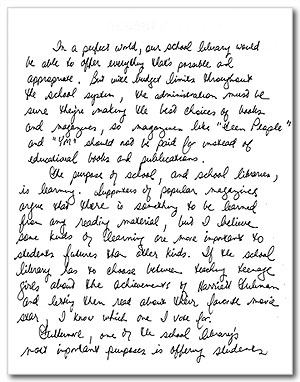 In a perfect world, our school library would
be able to offer everything that's possible and
appropriate. But with budget limits throughout
the school system, the administration must be
sure they're making the best choices of books
and magazines, so magazines like "Teen People"
and "YM" should not be paid for instead of
educational books and publications.
The purpose of school, and school libraries,
is learning. Supporters of popular magazines
argue that there is something to be learned
from any reading material, but I believe
some kinds of learning are more important to
students futures than other kinds. If the school
library has to choose between teaching teenage
girls about the achievements of Harriett Tubman
and letting them read about their favorite movie
star, I know which one I vote for.
Furthermore, one of the school library's
most important purposes is offering students